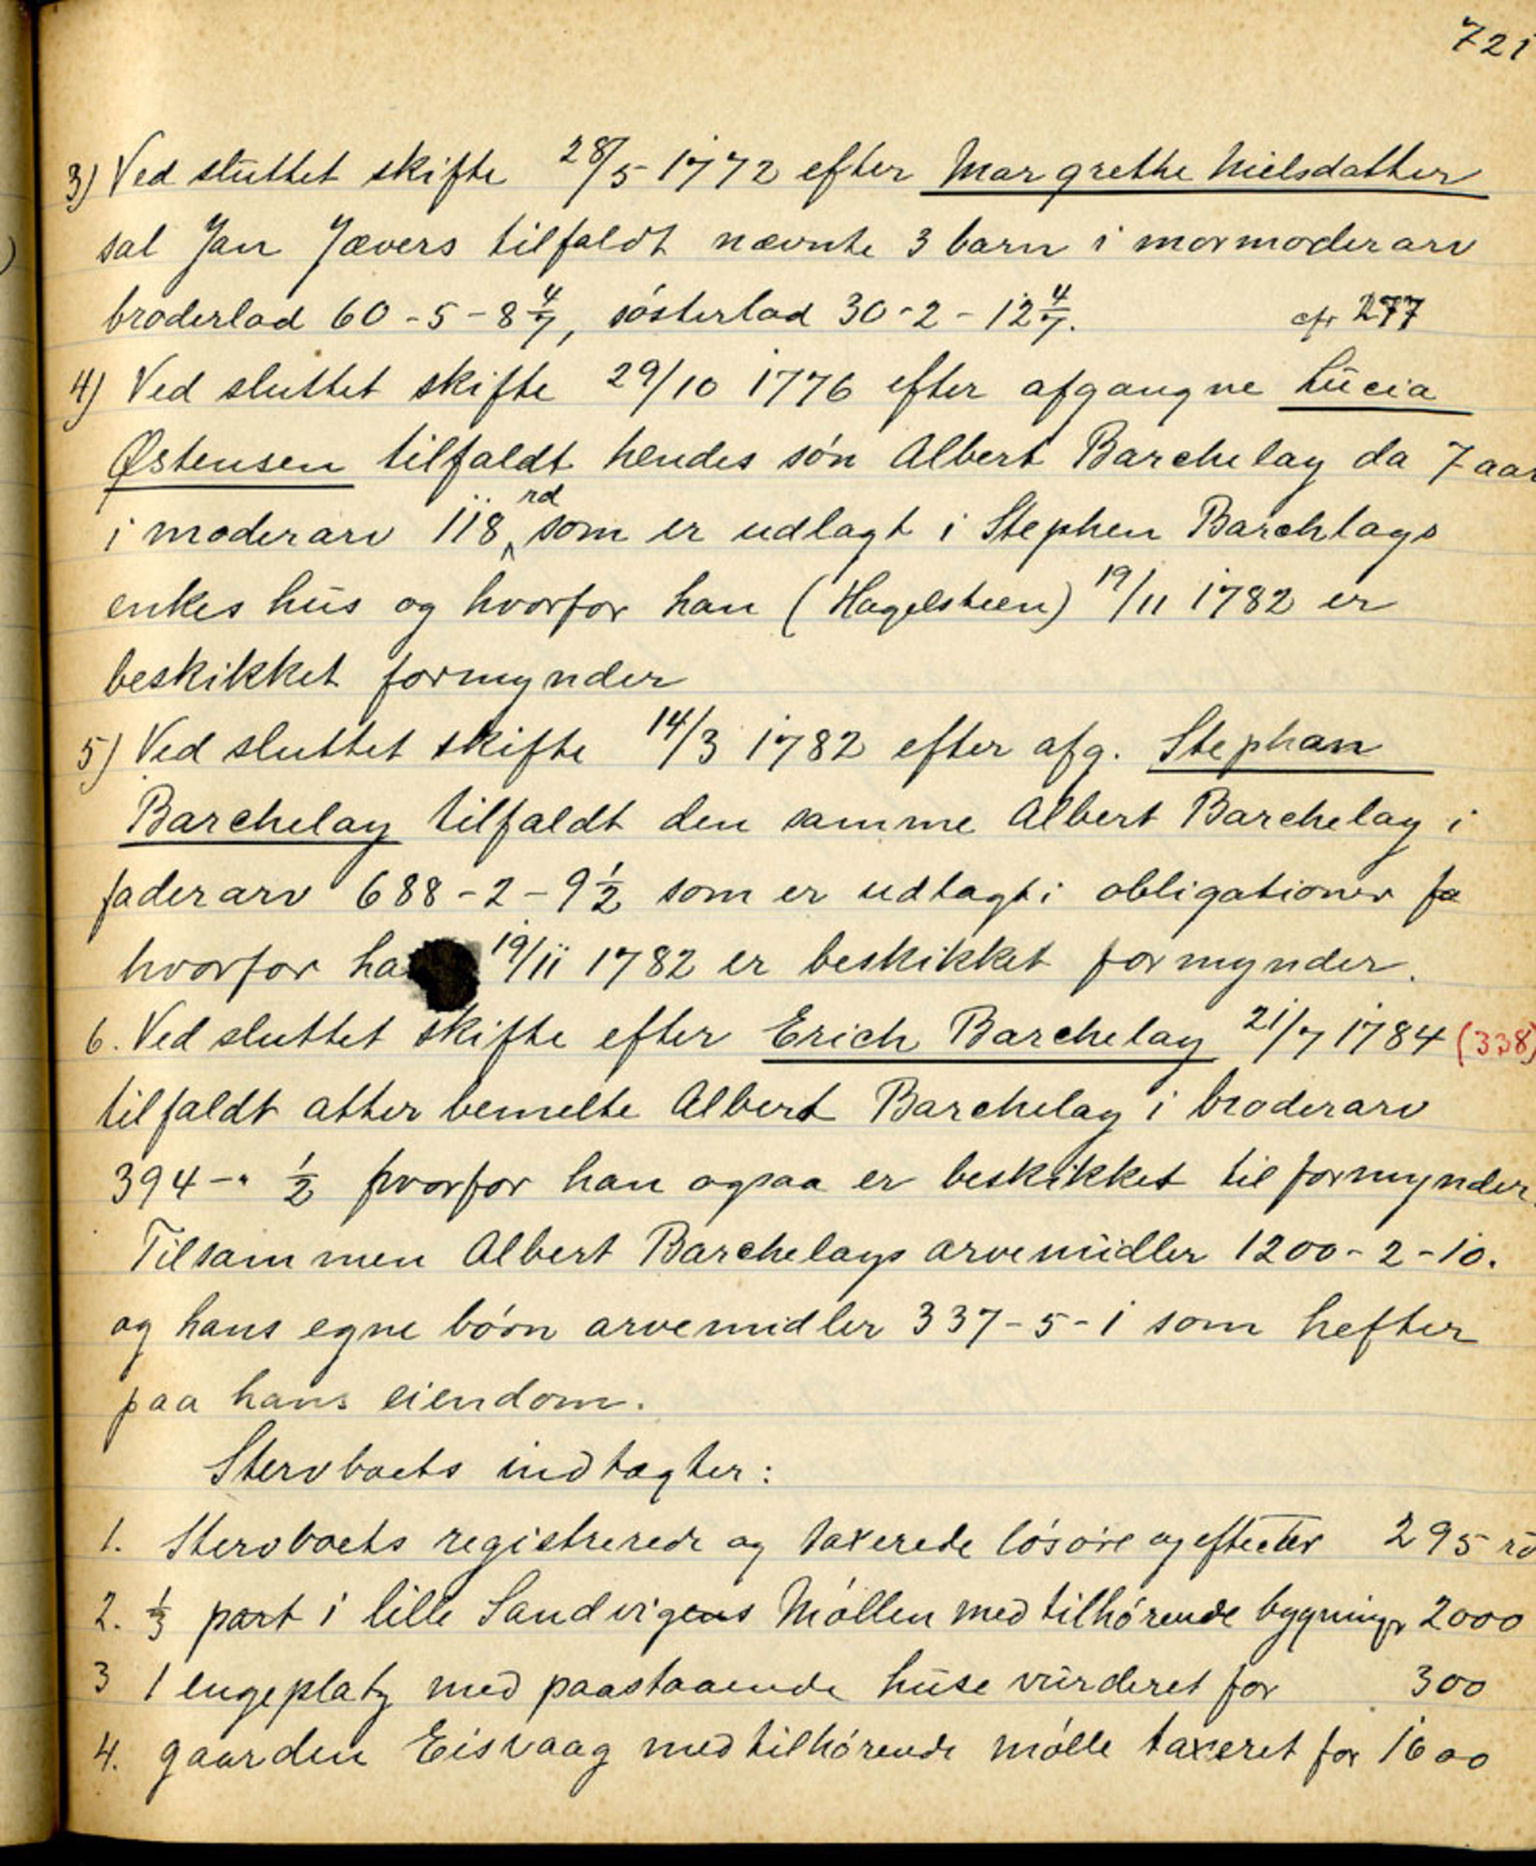 721
3) Ved sluttet skifte 28/5 1772 efter Margrethe Nielsdatter
sal Jan Jævers tilfaldt nævnte 3 barn i mormoderarv
broderlod 60-5-8 4/7, søsterlod 30-2-12 4/7. cfr 277
4) Ved sluttet skifte 29/10 1776 efter afgangne Lucia
Østensen tilfaldt hendes søn Albert Barchelay da 7 aar
i moderarv 118 rd som er udlagt i Stephen Barchlays
enkes hus og hvorfor han (Hagelsteen) 19/11 1782 er
beskikket formynder
5) Ved sluttet skifte 14/3 1782 efter afg. Stephan
Barchelay tilfaldt den samme Albert Barchelay i
faderarv 688-2-9 1/2 som er udlagt i obligationer
hvorfor ha 19/11 1782 er beskikket formynder.
6. Ved sluttet skifte efter Erich Barchelay 21/7 1784 (338)
tilfaldt atter bemelte Albert Barchelay i broderarv
394-" 1/2 hvorfor han ogsaa er beskikket til formynder.
Tilsammen Albert Barchelays arvemidler 1200-2-10.
og hans egne børn arvemidler 337-5-1 som hefter
paa hans eiendom.
Stervboets indtægter:
1. Stervboets registrerede og taxerede løsøre og effecter 295 rd
2. 1/3 part i lille Sandvigens Møllen med tilhørende bygninger 2000
3 1 engeplatz med paastaaende huse vurderet for 300
4. gaarden Eisvaag med tilhørende mølle taxeret for 1600